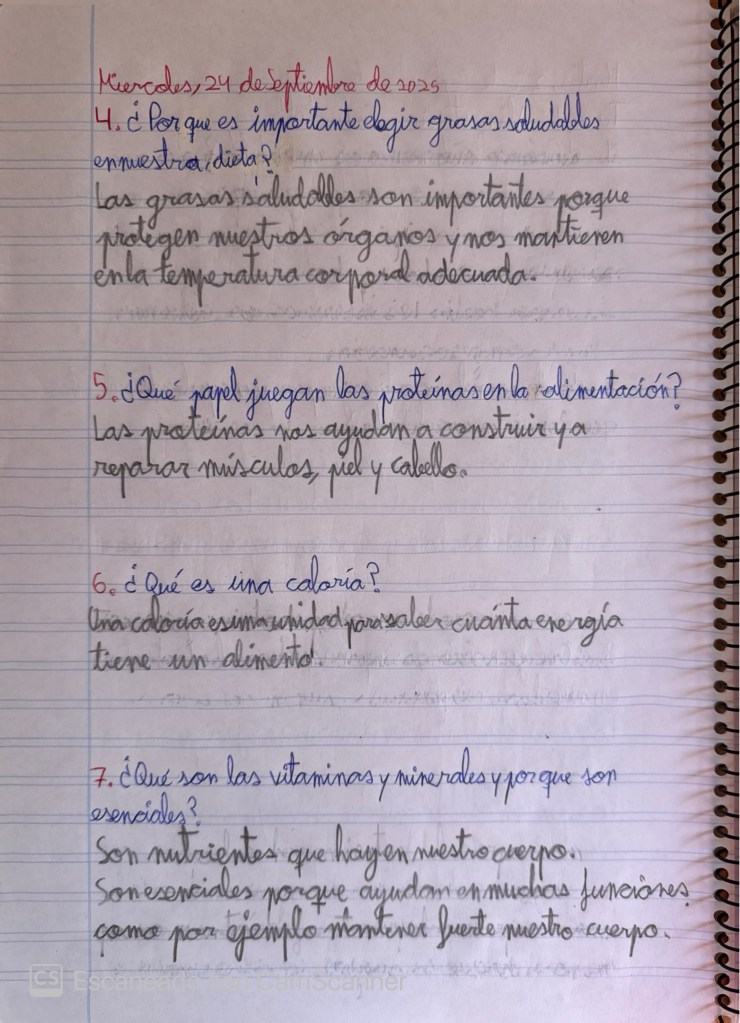 Miercoles, 24 de Septiembre de 2025
4. ¿Por que es importante elegir grasas saludables
en nuestra dieta?
Las grasas saludables son importantes porque
protegen nuestros órganos y nos mantienen
en la temperatura corporal adecuada.
5. ¿Qué papel juegan las proteínas en la alimentación?
Las proteínas nos ayudan a construir y a
reparar músculos, piel y cabello.
6. ¿Qué es una caloría?
Una caloría es una unidad para saber cuánta energía
tiene un alimento.
7. ¿Qué son las vitaminas y minerales y por que son
esenciales?
Son nutrientes que hay en nuestro cuerpo.
Son esenciales porque ayudan en muchas funciones
como por ejemplo mantener fuerte nuestro cuerpo.
CS Escaneado con CamScanner